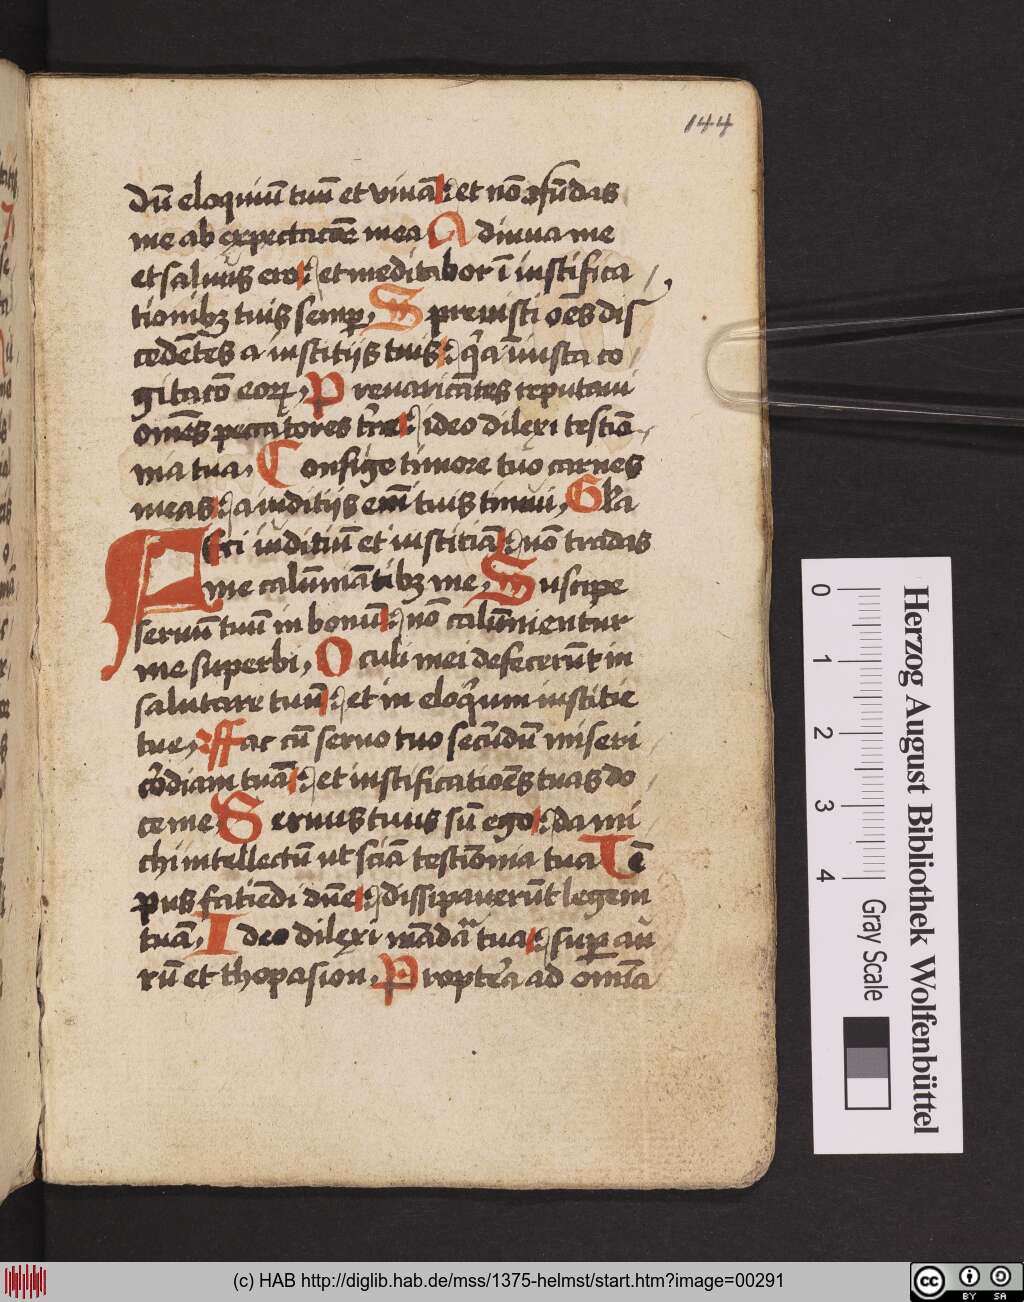 144
dū eloquiū tuū et viuā : et nō ꝯfūdas
me ab expectacōe mea A diuua me
et saluus ero : et meditabor ī iustifica
tionibꝫ tuis semꝑ. S preuisti oēs dis
cedētes a iustitijs tuis : qͥa iniusta co
gitacō eoꝝ. P reuaricātes reputaui
omēs peccatores tr̄re : ideo dilexi testiō
nia tua. C onfige timore tuo carnes
meas : a iuditijs em̄ tuis timui. Gl̄a
Feci iuditiū et iustitiā : nō tradas
me calūniātibꝫ me. S uscipe
seruū tuū in bonū : nō calūnientur
me superbi. O culi mei defecerūt in
salutare tuū : et in eloqͥum iustitie
tue. Ffac cū seruo tuo secūdū miseri
cͦrdiam tuā : et iustificatioēs tuas do
ce me. S eruus tuus sū ego : da mi
chi intellectū ut sciā testiōnia tua Tē
pus faciēdi dn̄e : dissipauerūt legem
tuā. I deo dilexi mādaͭa tua : suꝑ au
rū et thopasion. P ropter̄a ad omīa
0 1 2 3 4
Gray Scale
Herzog August Bibliothek Wolfenbüttel
(c) HAB http://diglib.hab.de/mss/1375-helmst/start.htm?image=00291
cc BY SA